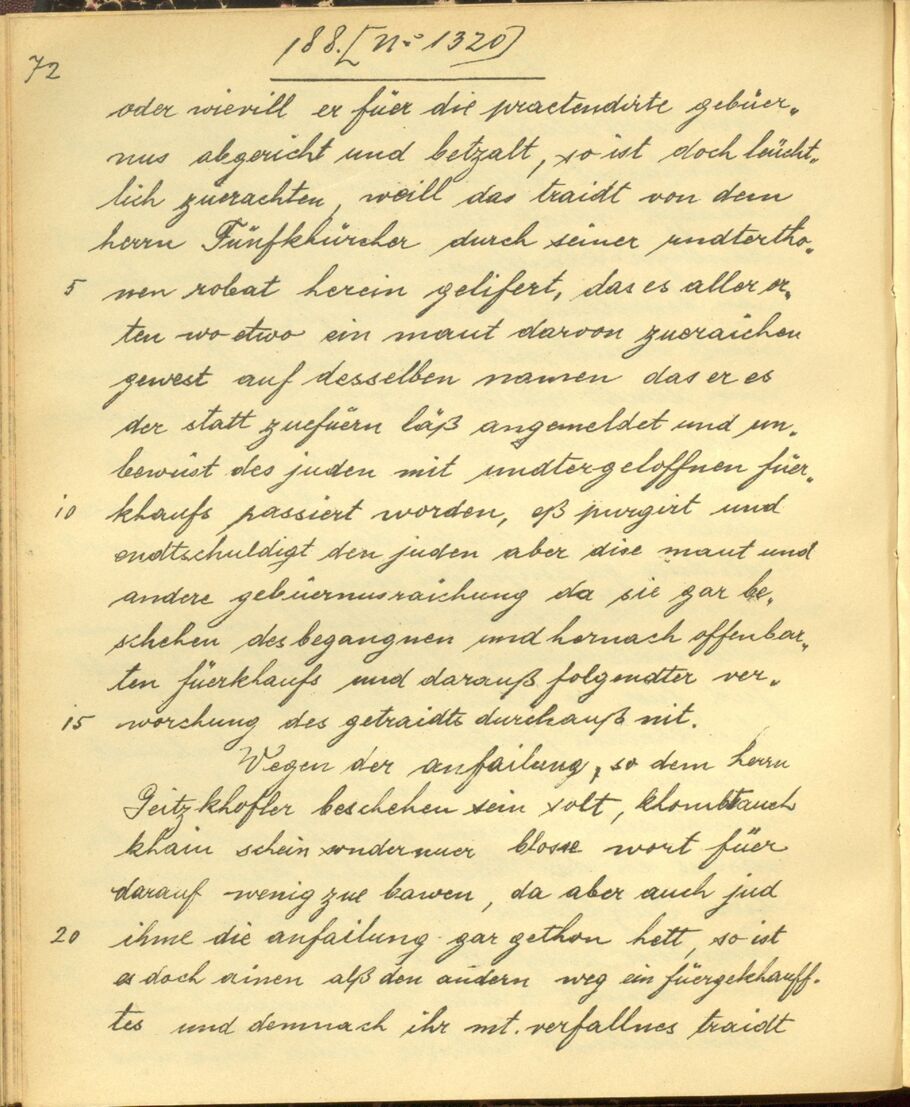 72
188. [No 1320]
oder wievill er füer die praetendirte gebüer„
nus abgericht und betzalt, so ist doch leücht„
lich zuerachten, weill das traidt von dem
herrn Fünfkhürcher durch seiner undtertho„
5 nen robat herein gelifert, das es aller or„
ten wo etwo ein maut darvon zueraichen
gewest auf desselben namen das er es
der statt zuefüern läß angemeldet und un„
bewüst des juden mit undtergeloffnen füer„
10 khaufs passiert worden, eß purgirt und
endtschuldigt den juden aber dise maut und
andere gebüernusraichung da sie gar be„
schehen des begangnen und hernach offenbar„
ten füerkhaufs und darauß folgendter ver„
15 worchung des getraidts durchauß nit.
Wegen der anfailung, so dem herrn
Geitzkhofler beschehen sein solt, khombt auch
khain schein sonder nuer blosse wort füer
darauf wenig zue bawen, da aber auch jud
20 ihme die anfailung gar gethon hett, so ist
es doch ainen alß den andern weg ein füergekhauff-
tes und demnach ihr mt. verfallnes traidt